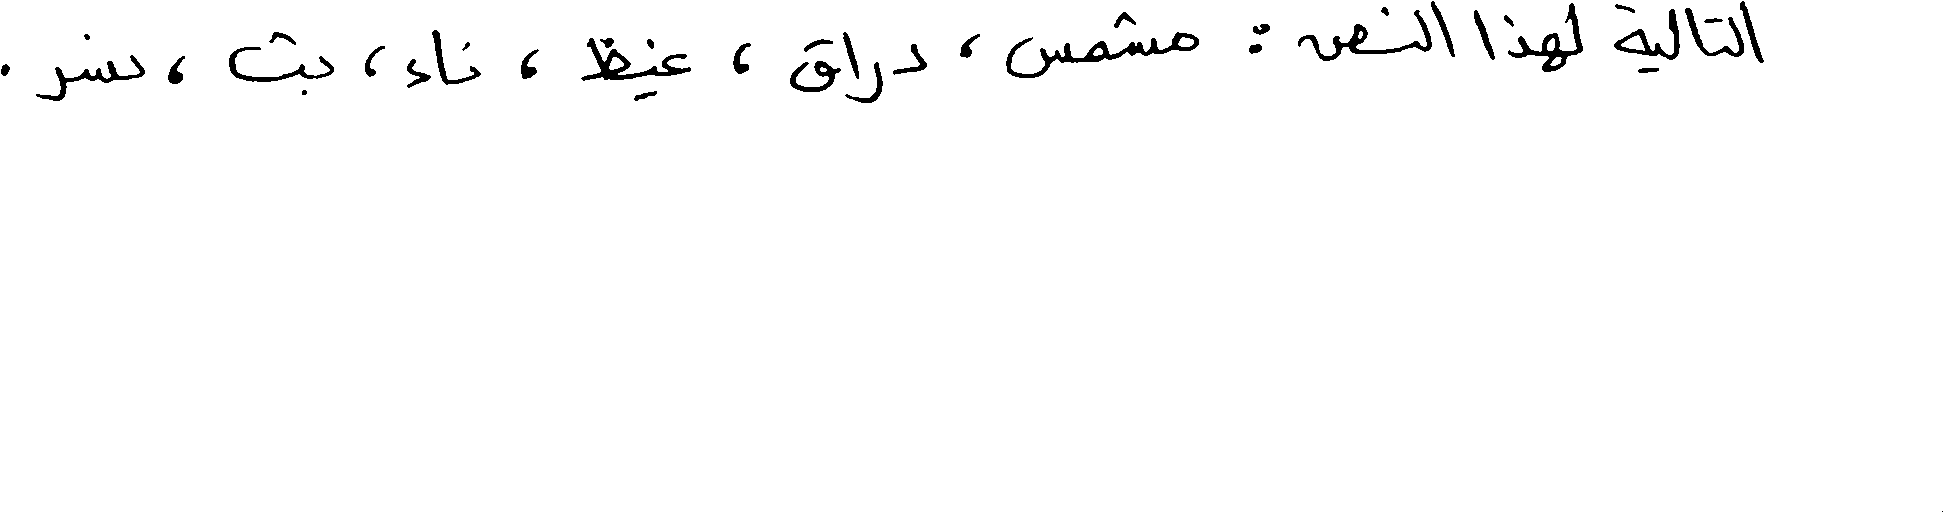 التالية لهذا النص : مشمس ، دراق ، غيظ ، ناء ، بث ، نسر .